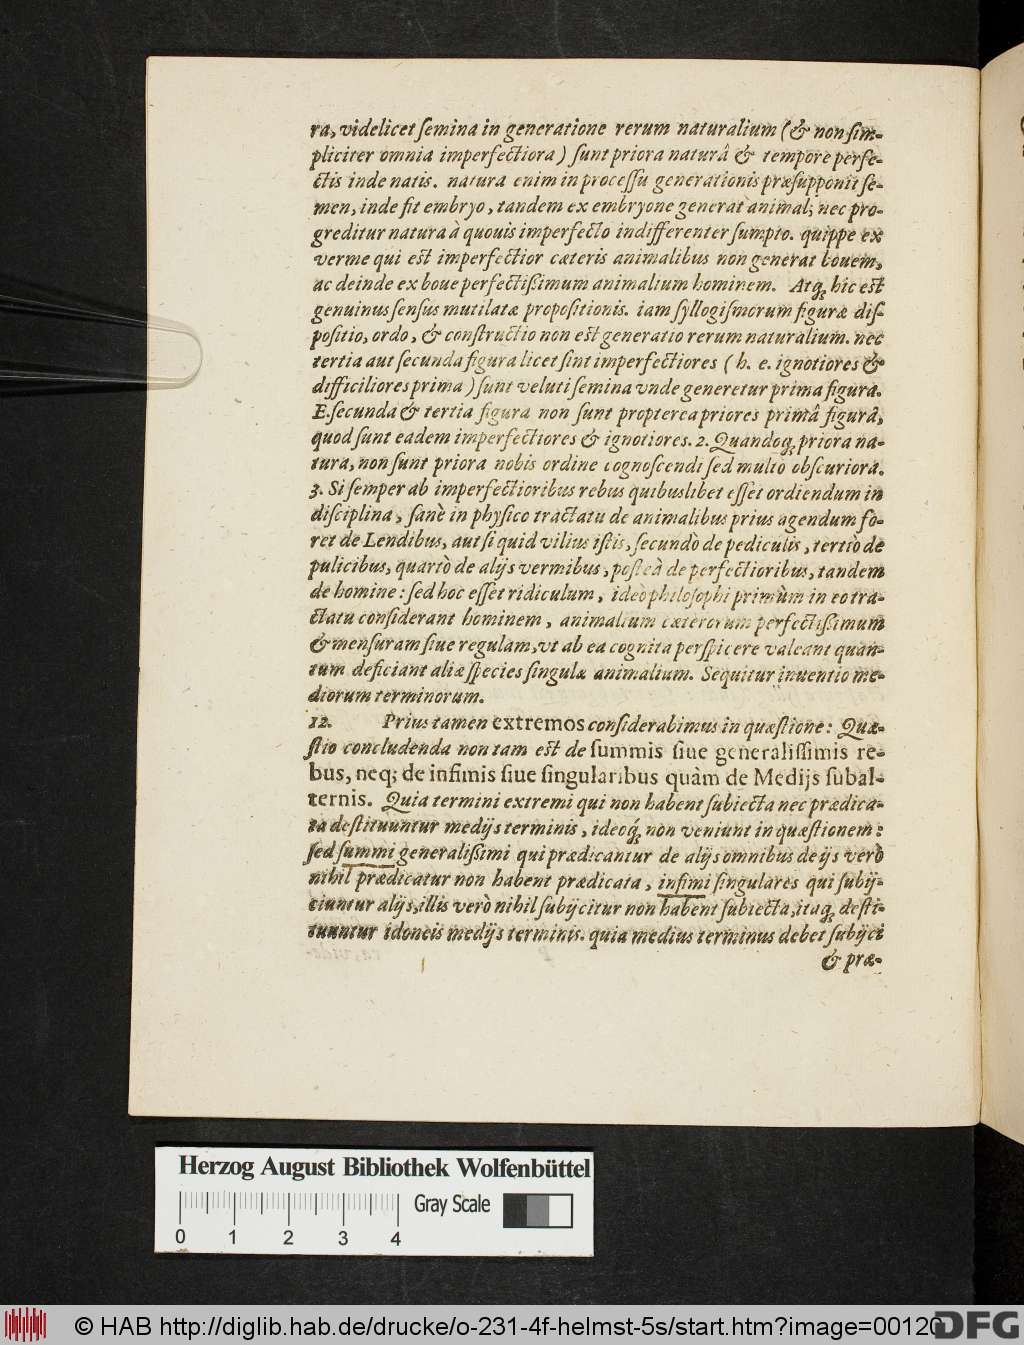 ra, videlicet ſemina in generatione rerum naturalium (& non ſim-
pliciter omnia imperfectiora) ſunt priora naturâ & tempore perfe-
ctis inde natis. natura enim in proceſſu generationis præſupponit ſe-
men, inde fit embryo, tandem ex embryone generat animal; nec pro-
greditur natura à quouis imperfecto indifferenter ſumpto. quippe ex
verme qui eſt imperfectior cæteris animalibus non generat bouem,
ac deinde ex boue perfectißimum animalium hominem. Atq; hic eſt
genuinus ſenſus mutilatæ propoſitionis. iam ſyllogiſmorum figuræ diſ-
poſitio, ordo, & conſtructio non eſt generatio rerum naturalium. nec
tertia aut ſecunda figura licet ſint imperfectiores (h. e. ignotiores &
difficiliores prima) ſunt veluti ſemina vnde generetur prima figura.
E. ſecunda & tertia figura non ſunt propterea priores primâ figurâ,
quod ſunt eadem imperfectiores & ignotiores. 2. Quandoq; priora na-
tura, non ſunt priora nobis ordine cognoſcendi ſed multo obſcuriora.
3. Si ſemper ab imperfectioribus rebus quibuslibet eſſet ordiendum in
diſciplina, ſanè in phyſico tractatu de animalibus prius agendum fo-
ret de Lendibus, aut ſi quid vilius iſtis, ſecundò de pediculis, tertiò de
pulicibus, quartò de alijs vermibus, poſteà de perfectioribus, tandem
de homine: ſed hoc eſſet ridiculum, ideò philoſophi primùm in eo tra-
ctatu conſiderant hominem, animalium cæterorum perfectißimum
& menſuram ſiue regulam, vt ab ea cognita perſpicere valeant quan-
tum deficiant aliæ ſpecies ſingulæ animalium. Sequitur inuentio me-
diorum terminorum.
12. Prius tamen extremos conſiderabimus in quæſtione: Quæ-
ſtio concludenda non tam eſt de ſummis ſiue generaliſſimis re-
bus, neq; de infimis ſiue ſingularibus quàm de Medijs ſubal-
ternis. Quia termini extremi qui non habent ſubiecta nec prædica-
ta deſtituuntur medijs terminis, ideoq́; non veniunt in quæſtionem:
ſed ſummi generalißimi qui prædicantur de alijs omnibus de ijs verò
nihil prædicatur non habent prædicata, infimi ſingulares qui ſubij-
ciuntur alijs, illis verò nihil ſubijcitur non habent ſubiecta, itaq; deſti-
tuuntur idoneis medijs terminis. quia medius terminus debet ſubijci
& præ-
Herzog August Bibliothek Wolfenbüttel
Gray Scale
0 1 2 3 4
© HAB http://diglib.hab.de/drucke/o-231-4f-helmst-5s/start.htm?image=00120
DFG